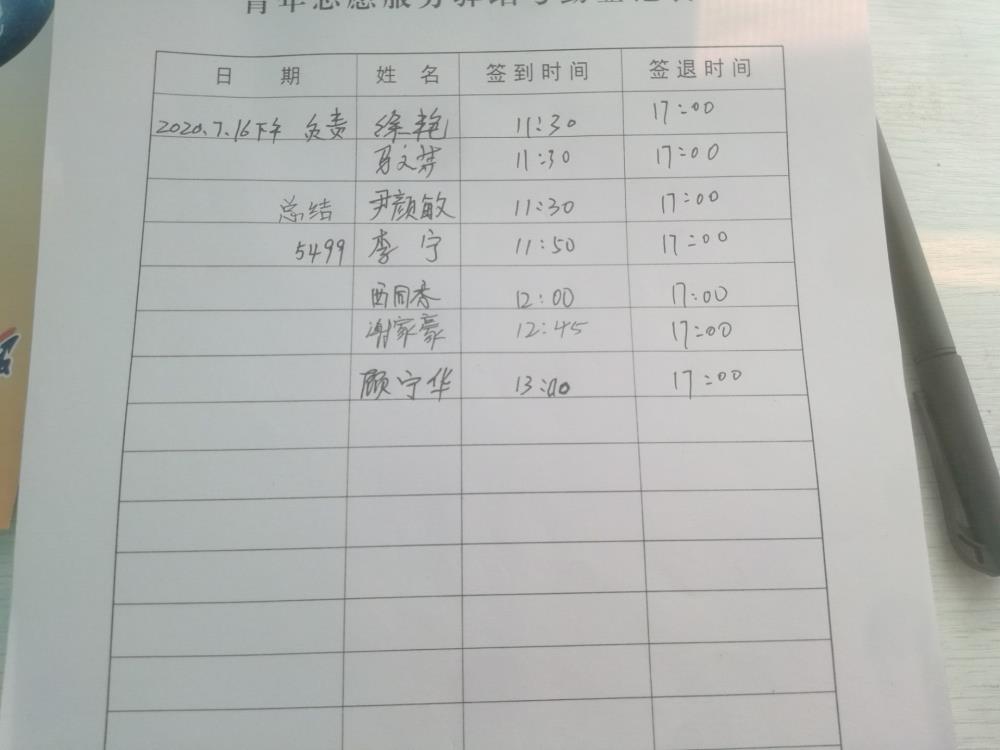 青年志愿服务驿站考勤登记表
日 期 姓 名 签到时间 签退时间
2020.7.16下午 负责 徐艳 11:30 17:00
马文梦 11:30 17:00
总结 尹颜敏 11:30 17:00
5499 李宁 11:50 17:00
西同春 12:00 17:00
谢家豪 12:45 17:00
顾宁华 13:00 17:00